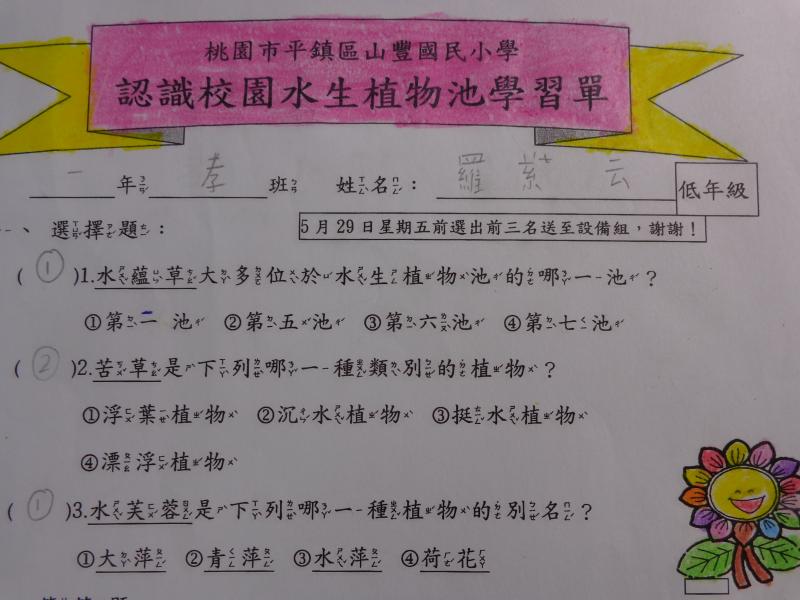 桃園市平鎮區山豐國民小學
認識校園水生植物池學習單
一 年 孝 班 姓名： 羅 紫 云 低年級
一、選擇題： 5月29日星期五前選出前三名送至設備組，謝謝！
(①)1.水蘊草大多位於水生植物池的哪一池？
①第一池 ②第五池 ③第六池 ④第七池
(②)2.苦草是下列哪一種類別的植物？
①浮葉植物 ②沉水植物 ③挺水植物
④漂浮植物
(①)3.水芙蓉是下列哪一種植物的別名？
①大萍 ②青萍 ③水萍 ④荷花